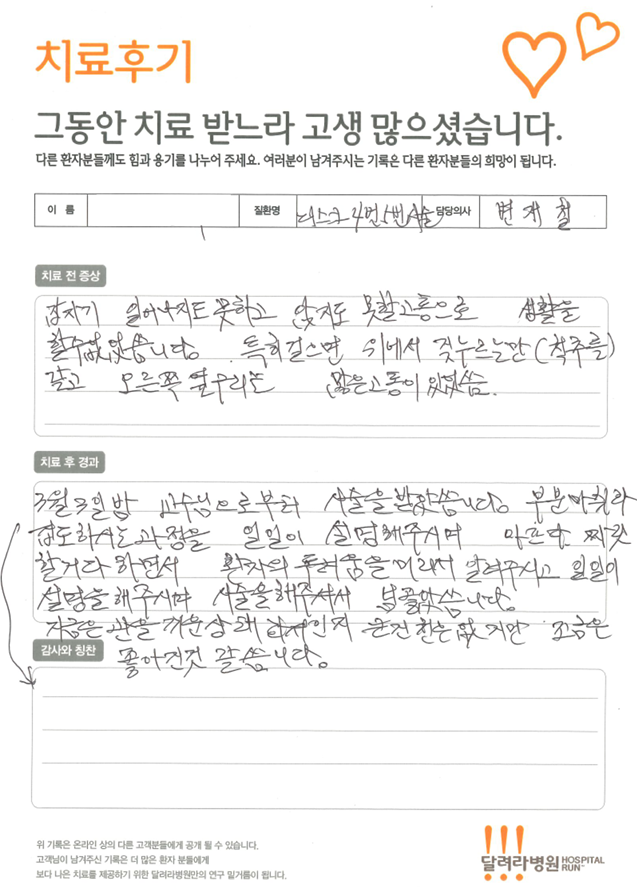 치료후기
그동안 치료 받느라 고생 많으셨습니다.
다른 환자분들께도 힘과 용기를 나누어 주세요. 여러분이 남겨주시는 기록은 다른 환자분들의 희망이 됩니다.
이 름 질환명 디스크 4번 5번 시술 담당의사 변재철
치료 전 증상
갑자기 일어나지도 못하고 앉지도 못할 고통으로 생활을
할수없었습니다. 특히 걸으면 위에서 짓누르는 (척추를)
같고 오른쪽 옆구리는 많은 고통이 있었씀.
치료 후 경과
3월 3일 밤 교수님으로부터 시술을 받았씁니다. 부분마취라
검도하시는 과정을 일일이 설명해주시며 아프다 찌릿
할거다 하면서 환자의 두려움을 미리서 알려주시고 일일이
설명을 해주시며 시술을 해주셔서 넘 좋았씁니다.
지금은 관을 끼운상태 조금은
감사와 칭찬
좋아진것 같씁니다.
위 기록은 온라인 상의 다른 고객분들에게 공개 될 수 있습니다.
고객님이 남겨주신 기록은 더 많은 환자 분들에게
보다 나은 치료를 제공하기 위한 달려라병원만의 연구 밑거름이 됩니다.
달려라병원 HOSPITAL RUN